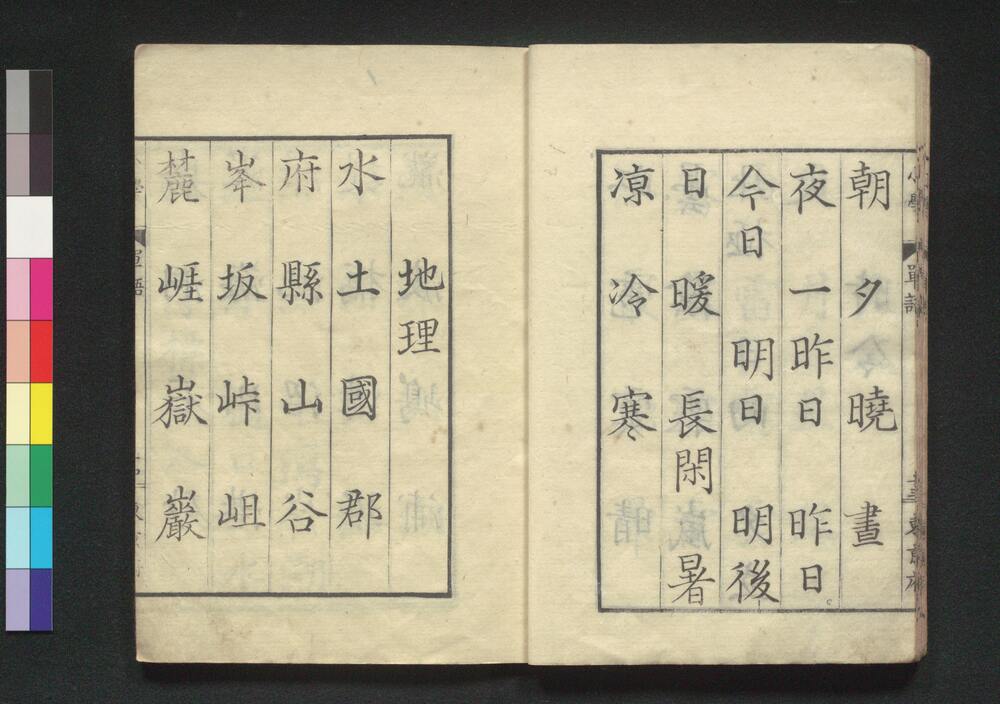 朝 夕 曉 晝
夜 一昨日 昨日
今日 明日 明後
日 暖 長閑 暑
凉 冷 寒
地理
水 土 國 郡
府 縣 山 谷
峯 坂 峠 岨
麓 崕 嶽 巖